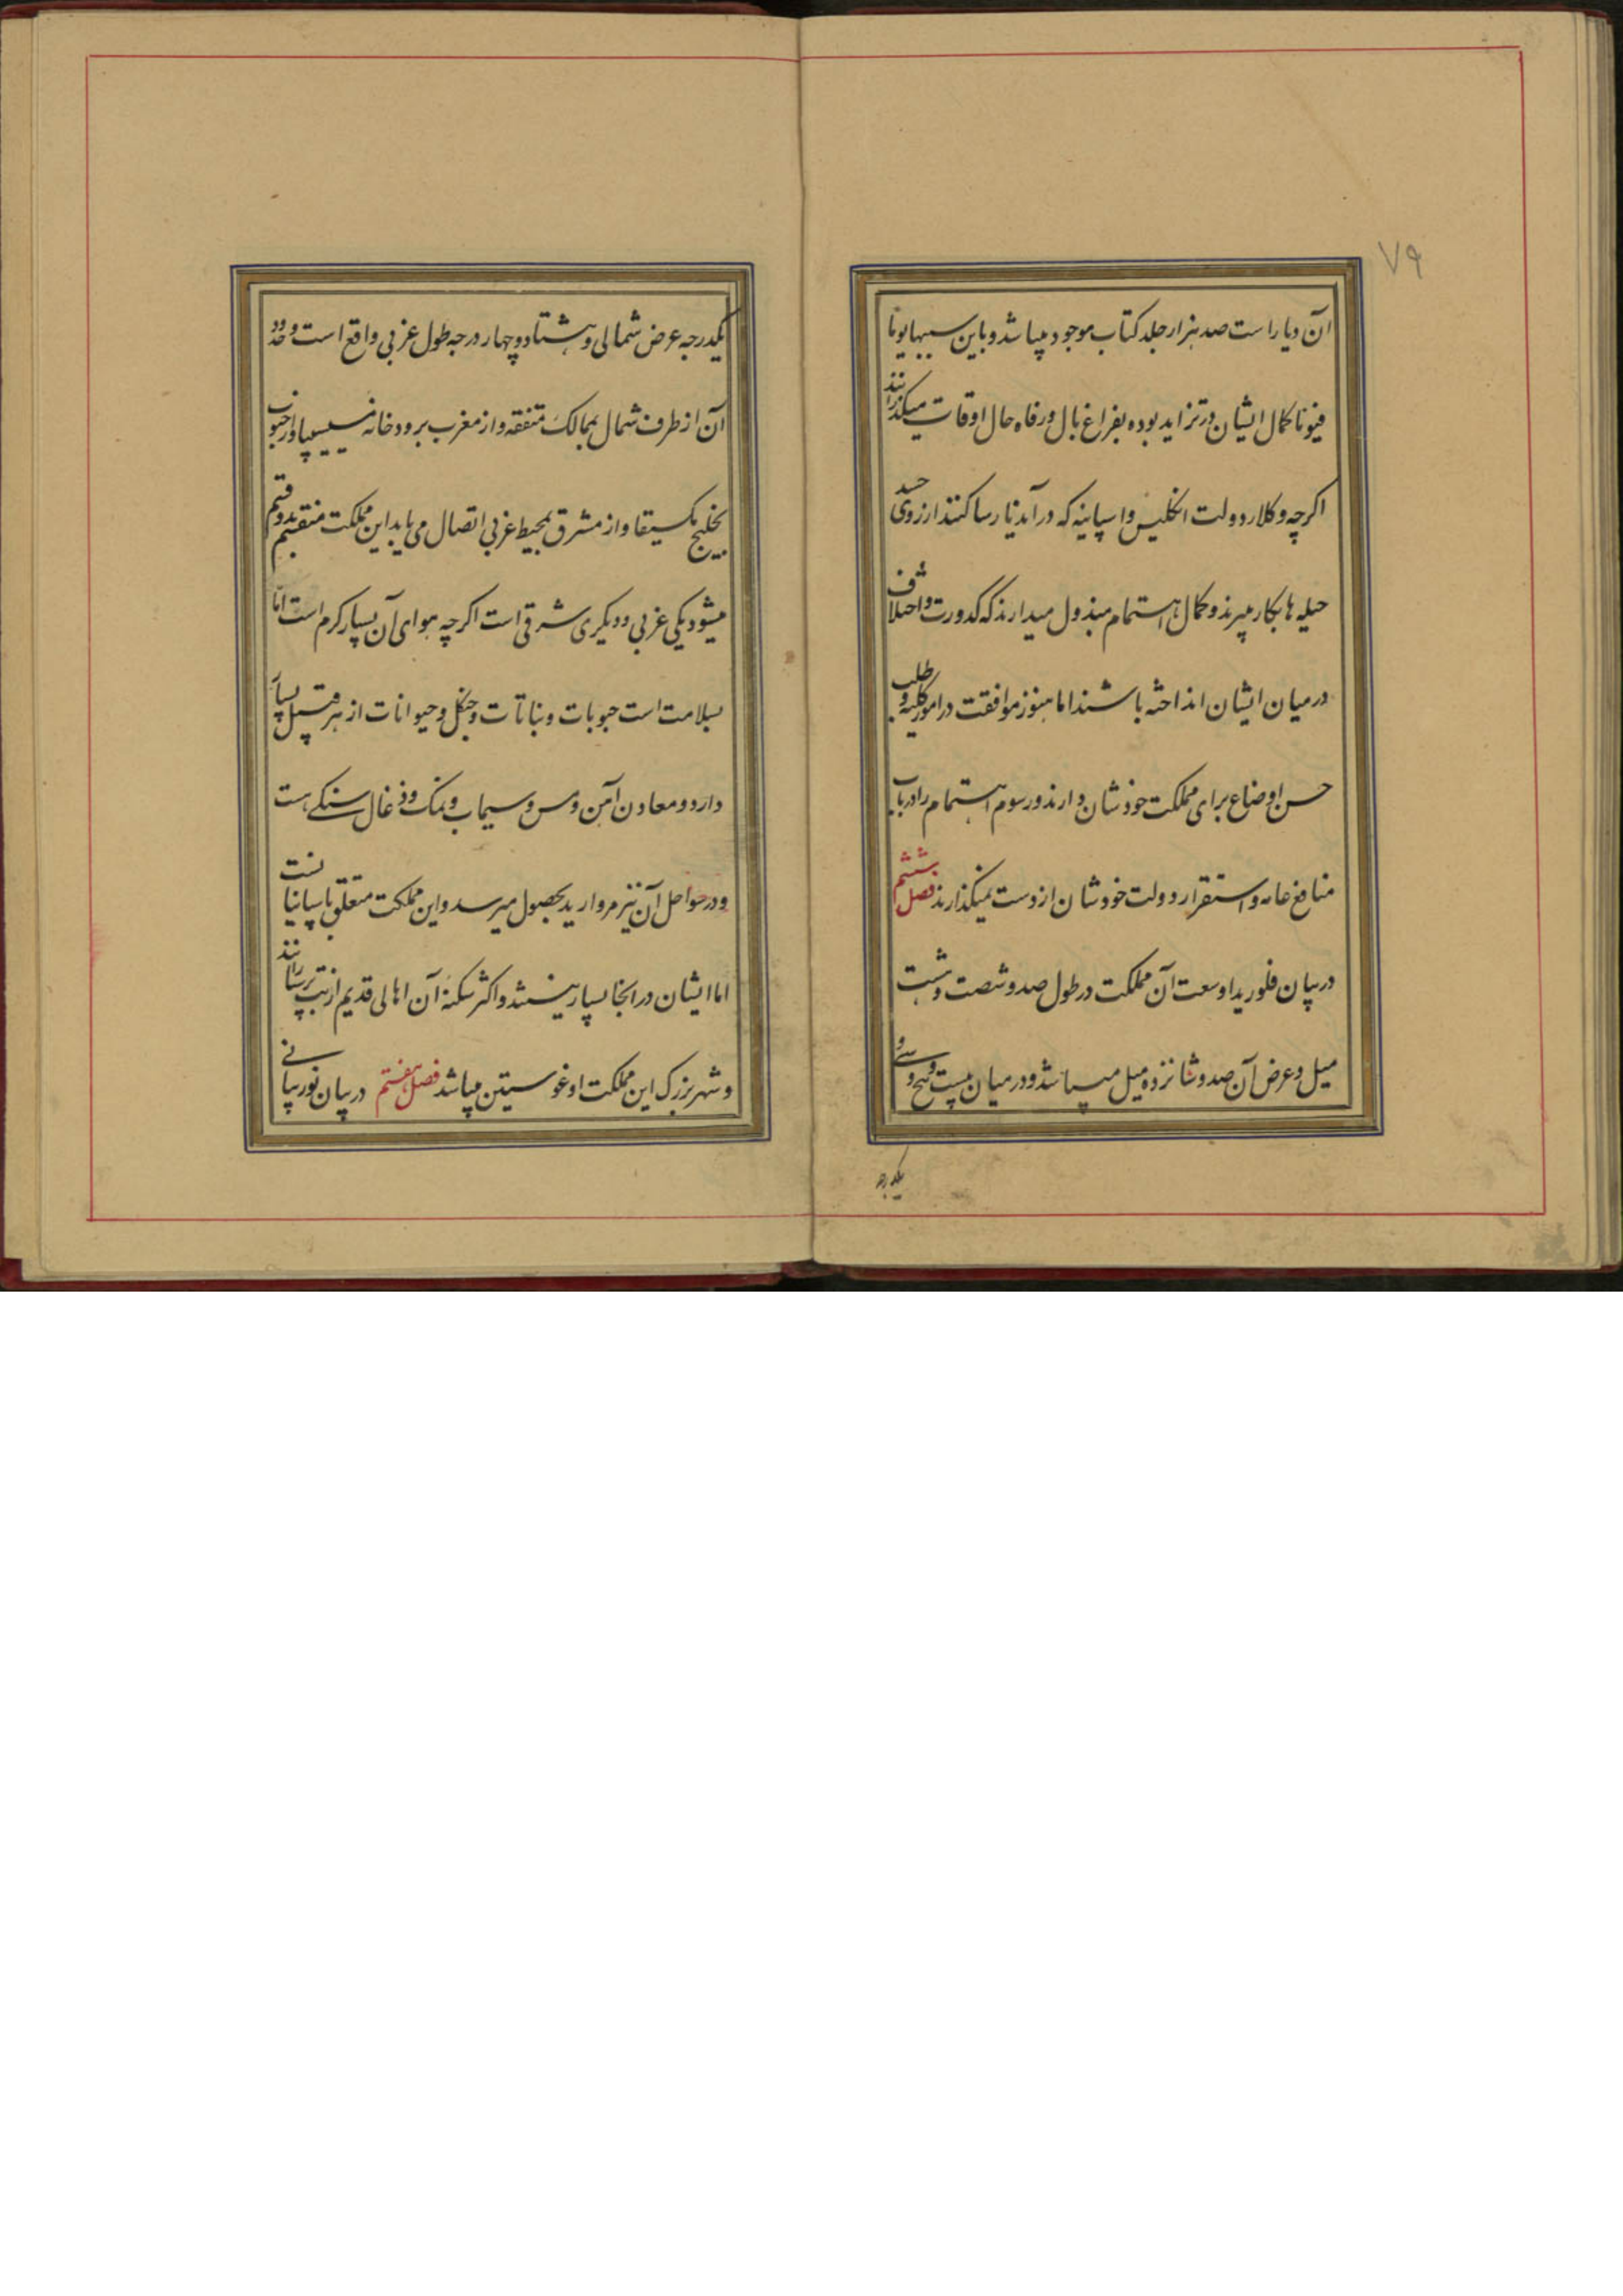 ۷۹
آن دیار است صد هزار جلد کتاب موجود میباشد و باین سببها یوما
فیوما کمال ایشان در تزاید بوده بفراغ بال و رفاه حال اوقات میکذرانند
اکرچه وکلاء دولت انکلیس و اسپانیه که در آندیار ساکنند از روی حسد
حیله ها بکار میبرند و کمال اهتمام مبذول میدارند که کدورت و اختلاف
در میان ایشان انداخته باشند اما هنوز موافقت در امور کلیه و طلب
حسن اوضاع برای مملکت خودشان دارند و رسوم اهتمام را در باب
منافع عامه و استقرار دولت خودشان از دست نمیکذارند فصل ششم
در بیان فلوریدا وسعت آن مملکت در طول صد و شصت و شت
میل و عرض آن صد و شانزده میل میباشد و در میان بیست و پنج و سی و
یکدرجه
یکدرجه عرض شمالی و هشتاد و چهار درجه طول غربی واقع است و حدود
آن از طرف شمال بممالک متفقه و از مغرب برودخانه میسیسیپا و از جنوب
بخلیج مکسیقا و از مشرق بمحیط غربی اتصال می یابد این مملکت منقسم بدو قسم
میشود یکی غربی و دیکری شرقی است اکرچه هوای آن بسیار کرم است اما
بسلامت است حبوبات و نباتات و جنکل و حیوانات از هر قبیل بسیار
دارد و معادن آهن و مس و سیماب و نمک و ذغال سنکی هست
و در سواحل آن نیز مروارید بحصول میرسد و این مملکت متعلق باسپانیاست
اما ایشان در آنجا بسیار نیستند و اکثر سکنهٔ آن اهالی قدیم از بت پرستانند
و شهر بزرک این مملکت اوغوستین میباشد فصل هفتم در بیان نوریپانی